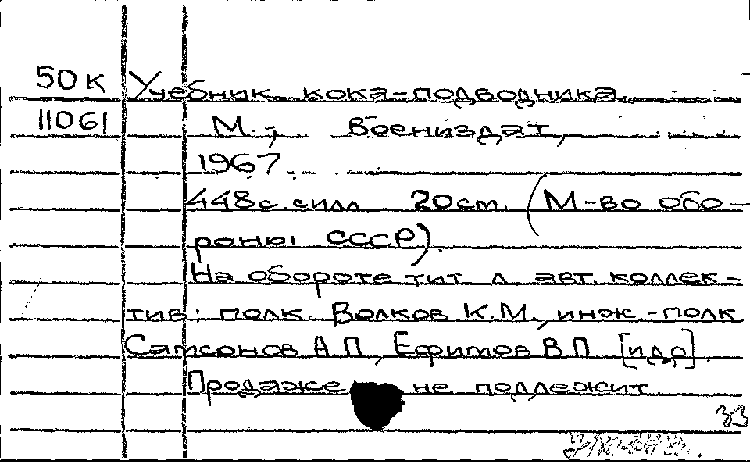 50к Учебник кока-подводника.
11061 М., Воениздат,
1967.
448с. с илл. 20 см. (М-во обо-
роны СССР).
На обороте тит. л. авт. коллек-
тив: полк. Волков К.М., инж.-полк
Самсонов А.П., Ефимов В.П. [и др]
Продаже не подлежит
33